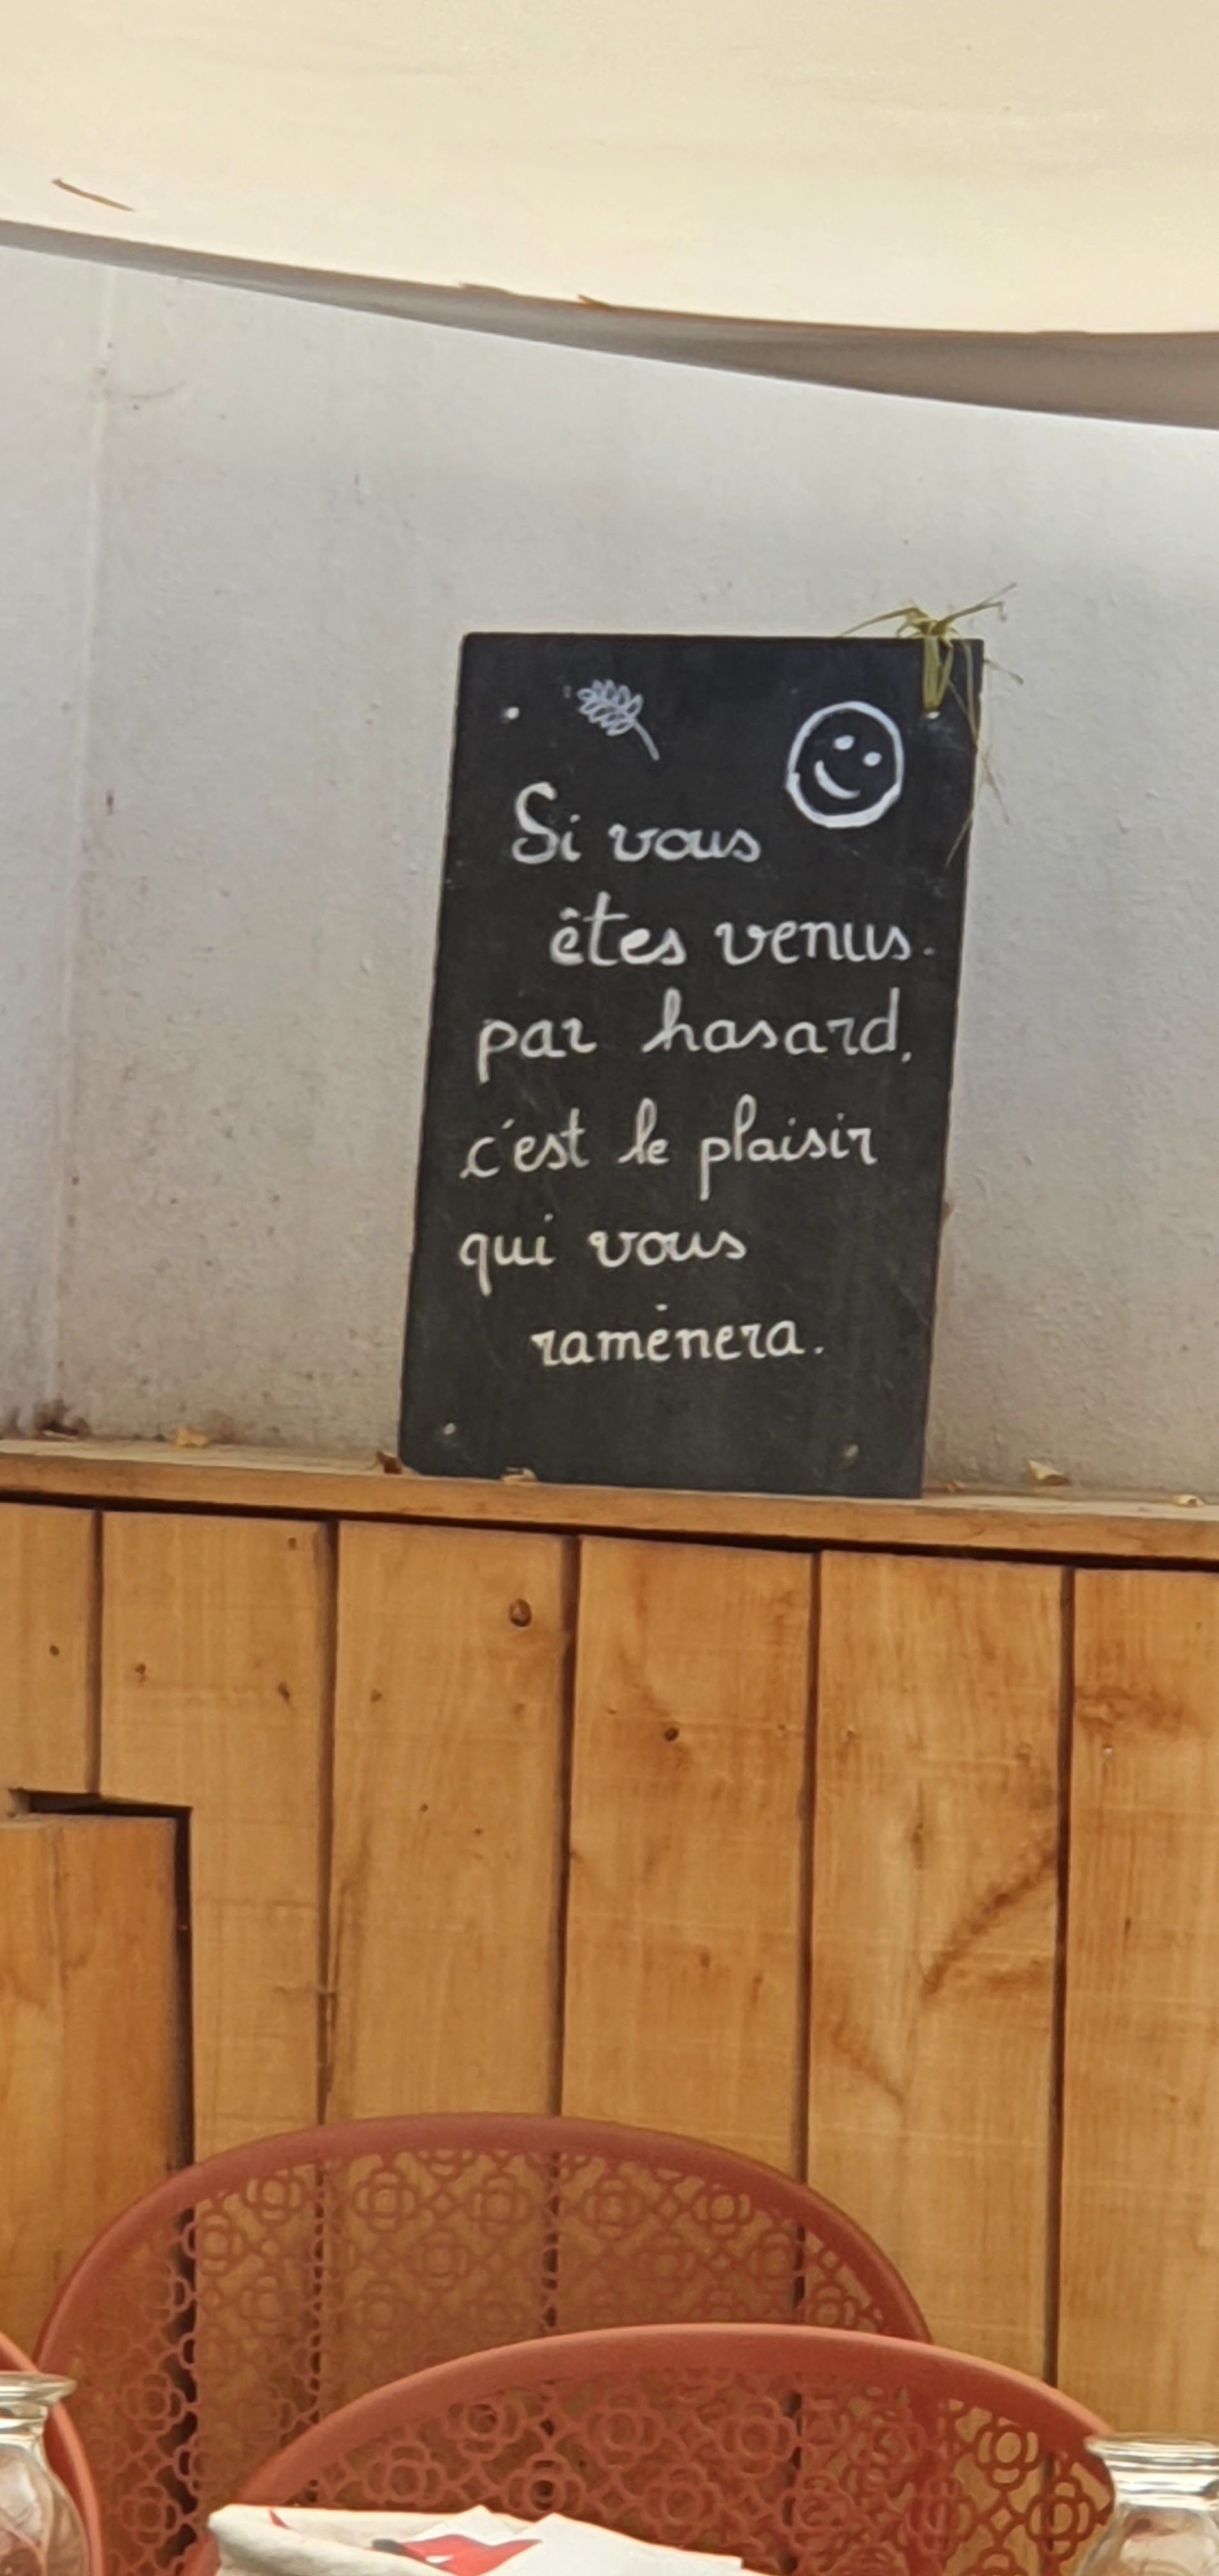 Si vous
êtes venus
par hasard,
c'est le plaisir
qui vous
ramènera.